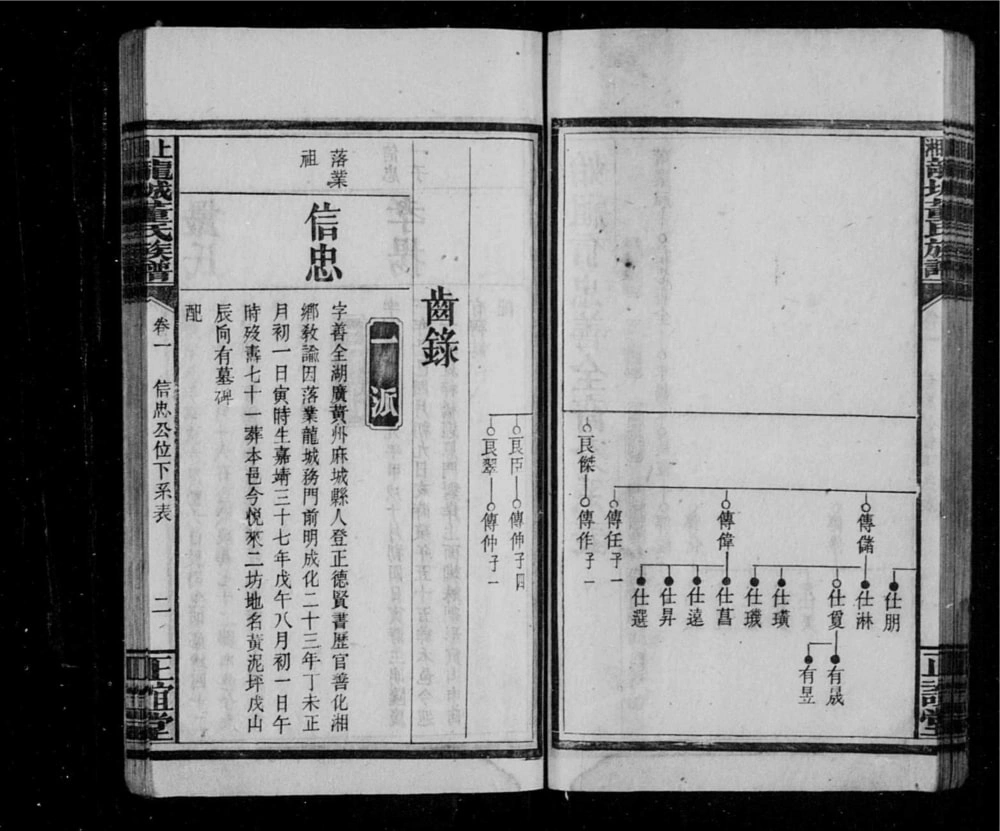 龍城董氏族譜
正誼堂
良傑
傳儲
傳偉
傳任子一
傳作子一
仕朋
仕淋
仕夐
仕璜
仕璣
仕菖
仕遠
仕昇
仕選
有晟
有昱
良臣
傳伸子四
良翠
傳仲子一
齒錄
一派
落業
祖
信忠
字善全湖廣黃州麻城縣人登正德賢書歷官善化湘
鄉教諭因落業龍城務門前明成化二十三年丁未正
月初一日寅時生嘉靖三十七年戊午八月初一日午
時歿壽七十一葬本邑今悅來二坊地名黃泥坪戊山
辰向有墓碑
配
上
龍城董氏族譜
卷一
信忠公位下系表
二
正誼堂